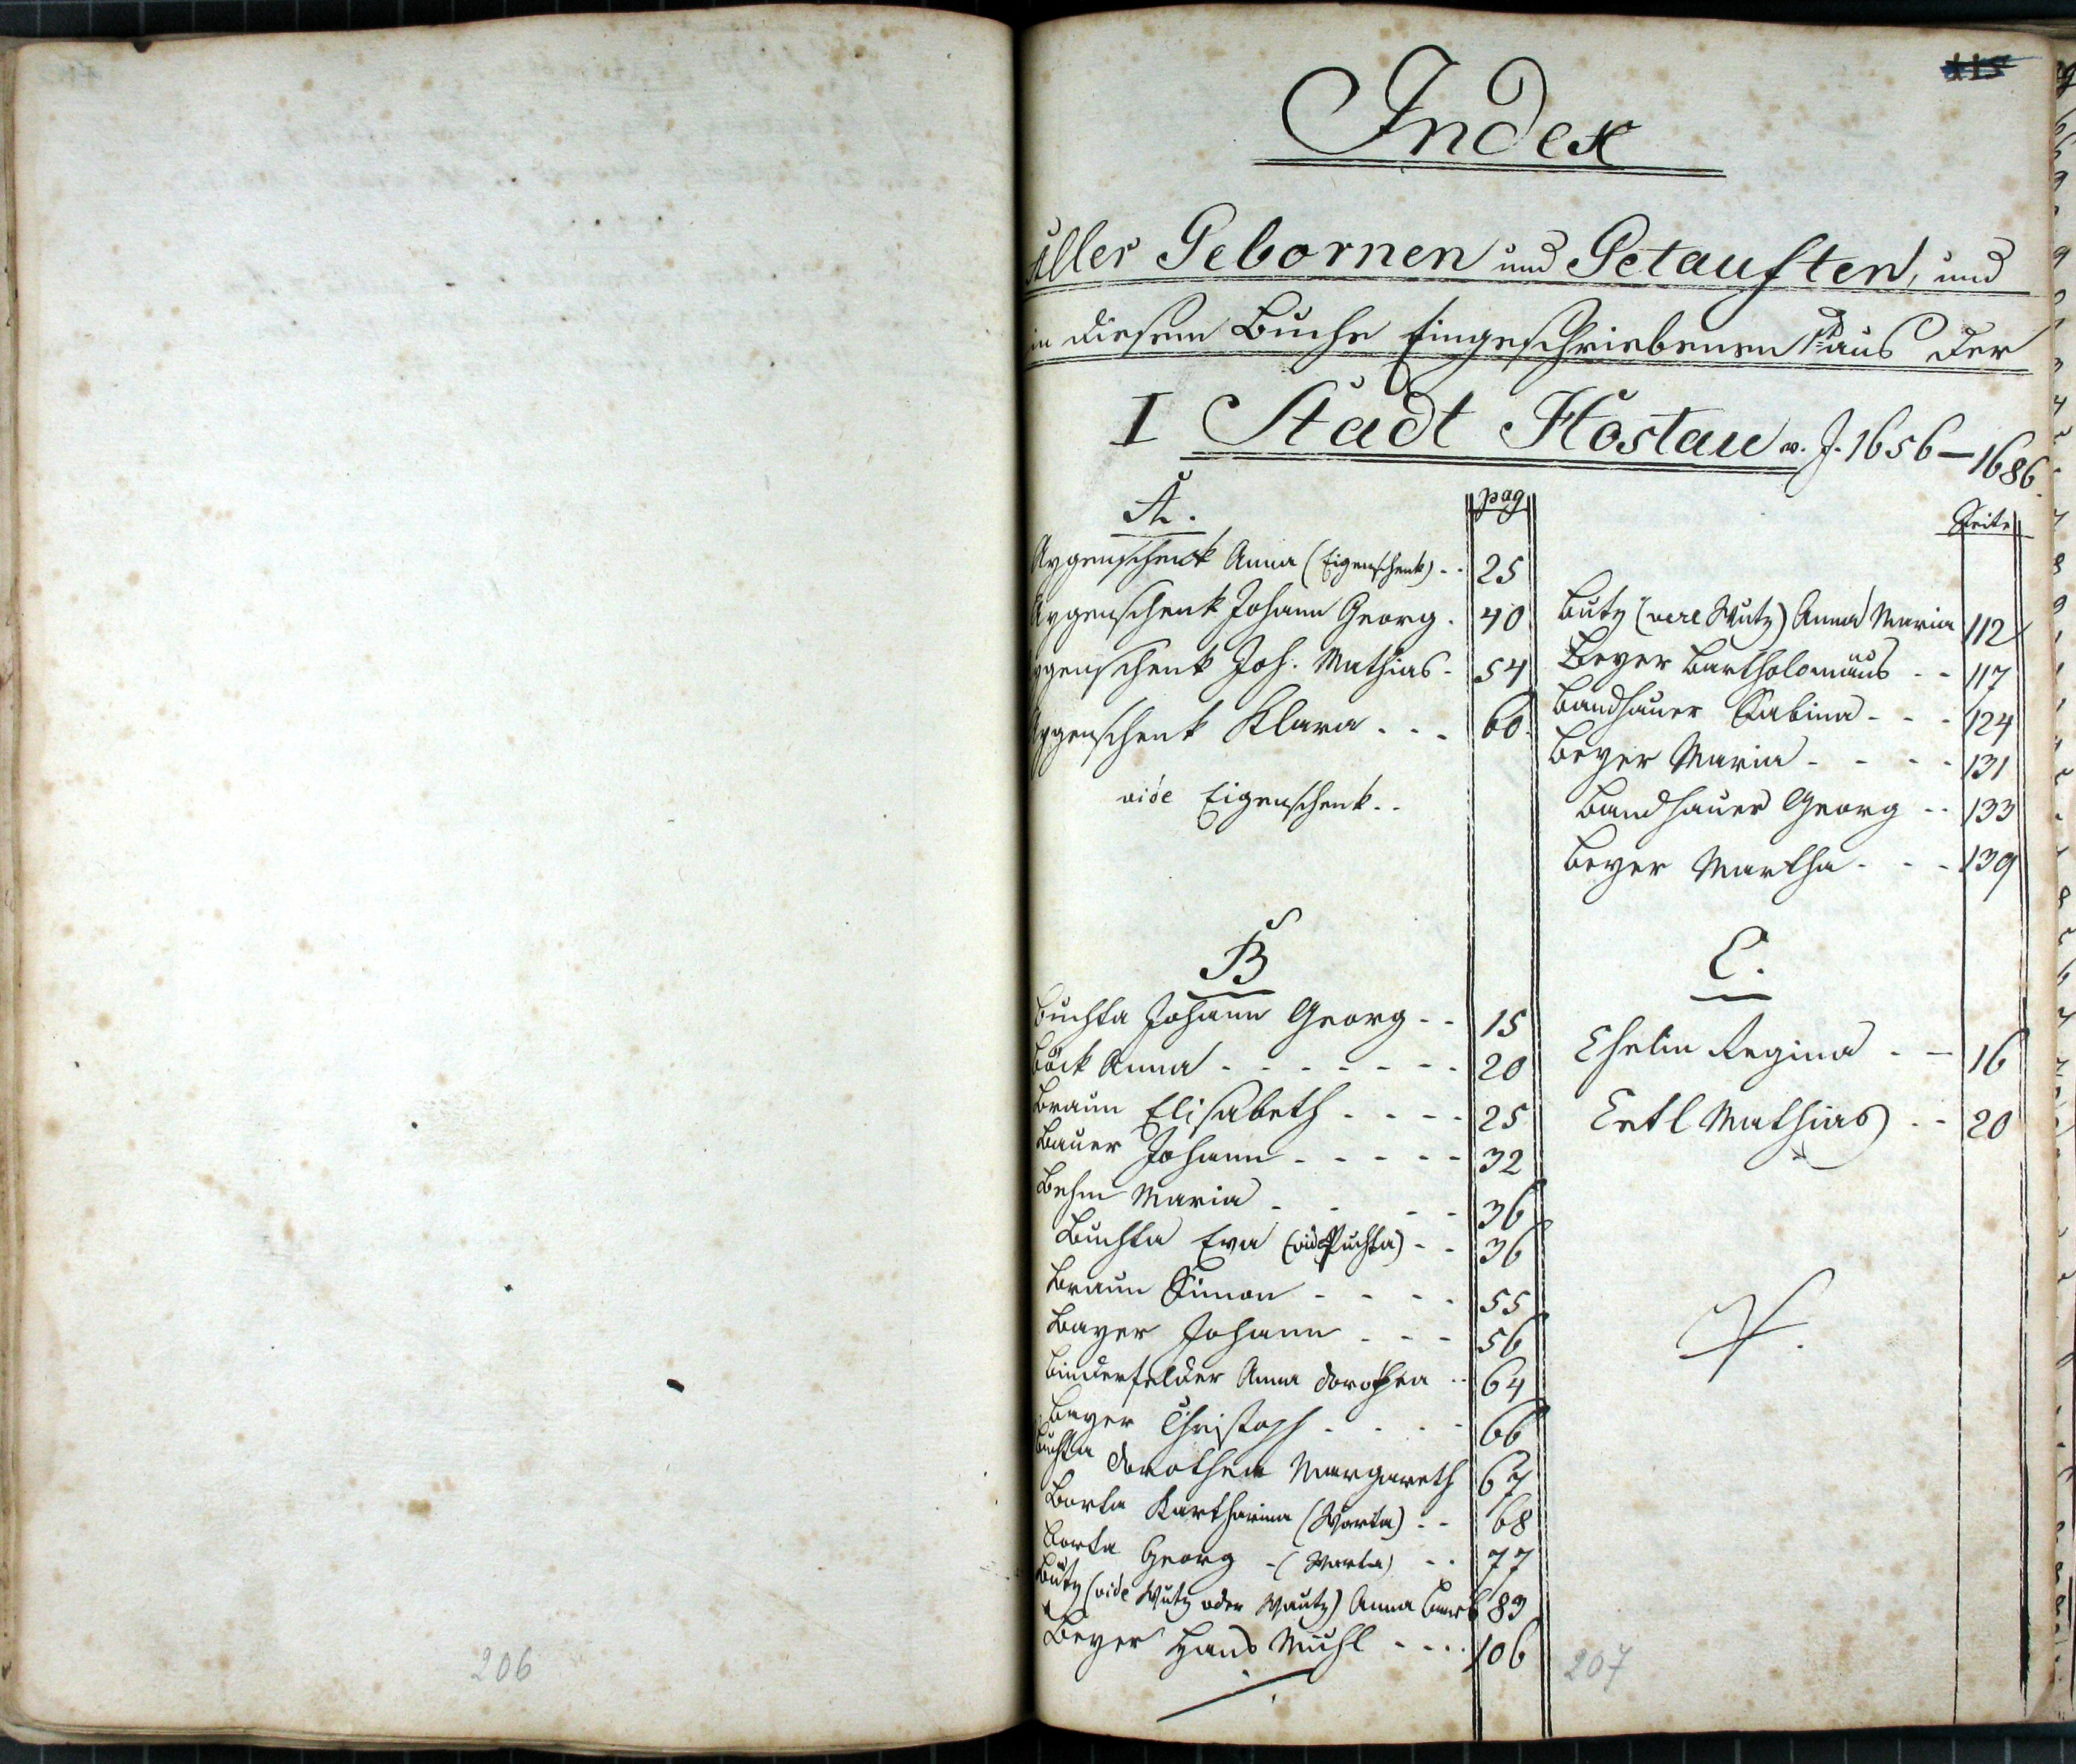 115
Index
Aller Gebornen und Getauften, und
in diesem Buche Eingeschriebenen aus der
I Stadt Hostau v. J. 1656–1686.
A.
pag
Aygenschenk Anna (Eigenschenk) - - 25
Aygenschenk Johann Georg . 40
Aygenschenk Joh. Mathias - 54
Aygenschenk Klara . . - 60.
vide Eigenschenk . .
B
Buchta Johann Georg - - 15
Böck Anna - - - - - - - 20
Braun Elisabeth . - - - 25
Bauer Johann - - - - - 32
Behm Maria . - - - 36
Buchta Eva (vide Puchta) - - 36
Braun Simon - - - - 55
Bayer Johann . - - 56
Binderfelder Anna Dorothea . . 64
Beyer Christoph . - - - 66
Buchta Dorothea Margareth 67
Borta Kartharina (Worta) - - 68
Borta Georg - (Worta) - - 77
Butz (vide Wutz oder Wautz) Anna Barb 83
Beyer Hans Michl - - - . 106
Seite
Butz (vere Wutz) Anna Maria 112
Beyer Bartholomäus - - 117
Bandhauer Sabina - - - 124
Beyer Maria - - - - 131
Bandhauer Georg - - 133
Beyer Martha - - - 139
C.
Chelin Regina . - 16
Certl Mathias . - 20
206
207